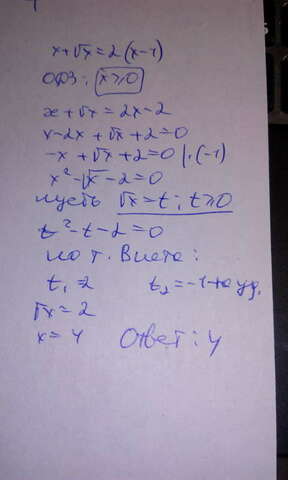 x+√x=2(x-1)
ОДЗ: x≥0
x+√x=2x-2
x-2x+√x+2=0
-x+√x+2=0 |·(-1)
x²-√x-2=0
пусть √x=t; t≥0
t²-t-2=0
по т. Виета:
t₁=2 t₂=-1-не уд.
√x=2
x=4 Ответ: 4